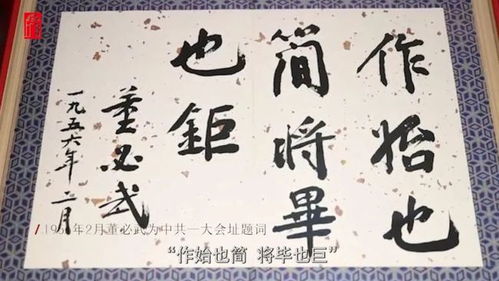 作始也
簡將畢
也鉅
董必武
一九五六年二月
1956年2月董必武为中共一大会址题词
“作始也简 将毕也巨”